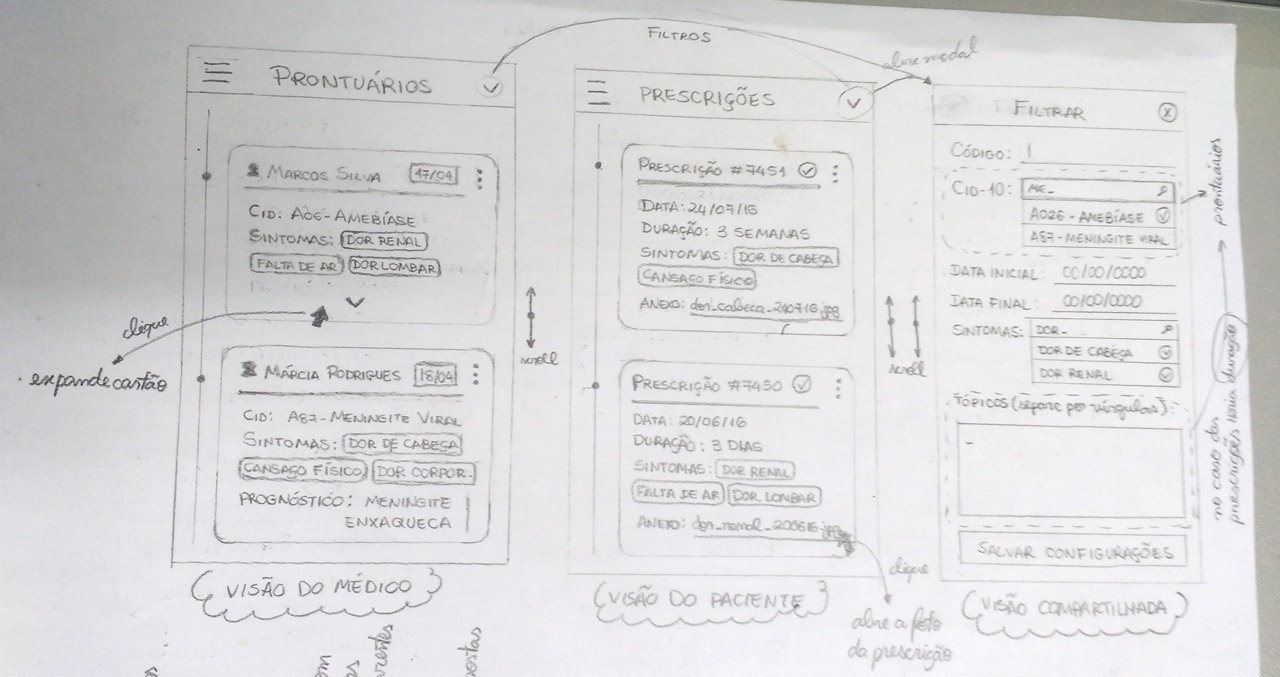 FILTROS
abre modal
PRONTUÁRIOS
MARCOS SILVA 17/04
CID: A06-AMEBÍASE
SINTOMAS: DOR RENAL
FALTA DE AR DOR LOMBAR
clique
expande cartão
MÁRCIA RODRIGUES 18/04
CID: A87-MENINGITE VIRAL
SINTOMAS: DOR DE CABEÇA
CANSAÇO FÍSICO DOR CORPOR.
PROGNÓSTICO: MENINGITE
ENXAQUECA
VISÃO DO MÉDICO
scroll
PRESCRIÇÕES
PRESCRIÇÃO #7451
DATA: 24/07/16
DURAÇÃO: 3 SEMANAS
SINTOMAS: DOR DE CABEÇA
CANSAÇO FÍSICO
ANEXO: dor_cabeca_240716.jpg
PRESCRIÇÃO #7450
DATA: 20/06/16
DURAÇÃO: 3 DIAS
SINTOMAS: DOR RENAL
FALTA DE AR DOR LOMBAR
ANEXO: dor_renal_200616.jpg
VISÃO DO PACIENTE
clique
abre a foto
da prescrição
scroll
FILTRAR X
CÓDIGO:
CID-10: ME_
A026 - AMEBÍASE
A87-MENINGITE VIRAL
DATA INICIAL: 00/00/0000
DATA FINAL: 00/00/0000
SINTOMAS: DOR_
DOR DE CABEÇA
DOR RENAL
TÓPICOS (separe por vírgulas):
SALVAR CONFIGURAÇÕES
VISÃO COMPARTILHADA
prontuários
no caso das
prescrições seria duração